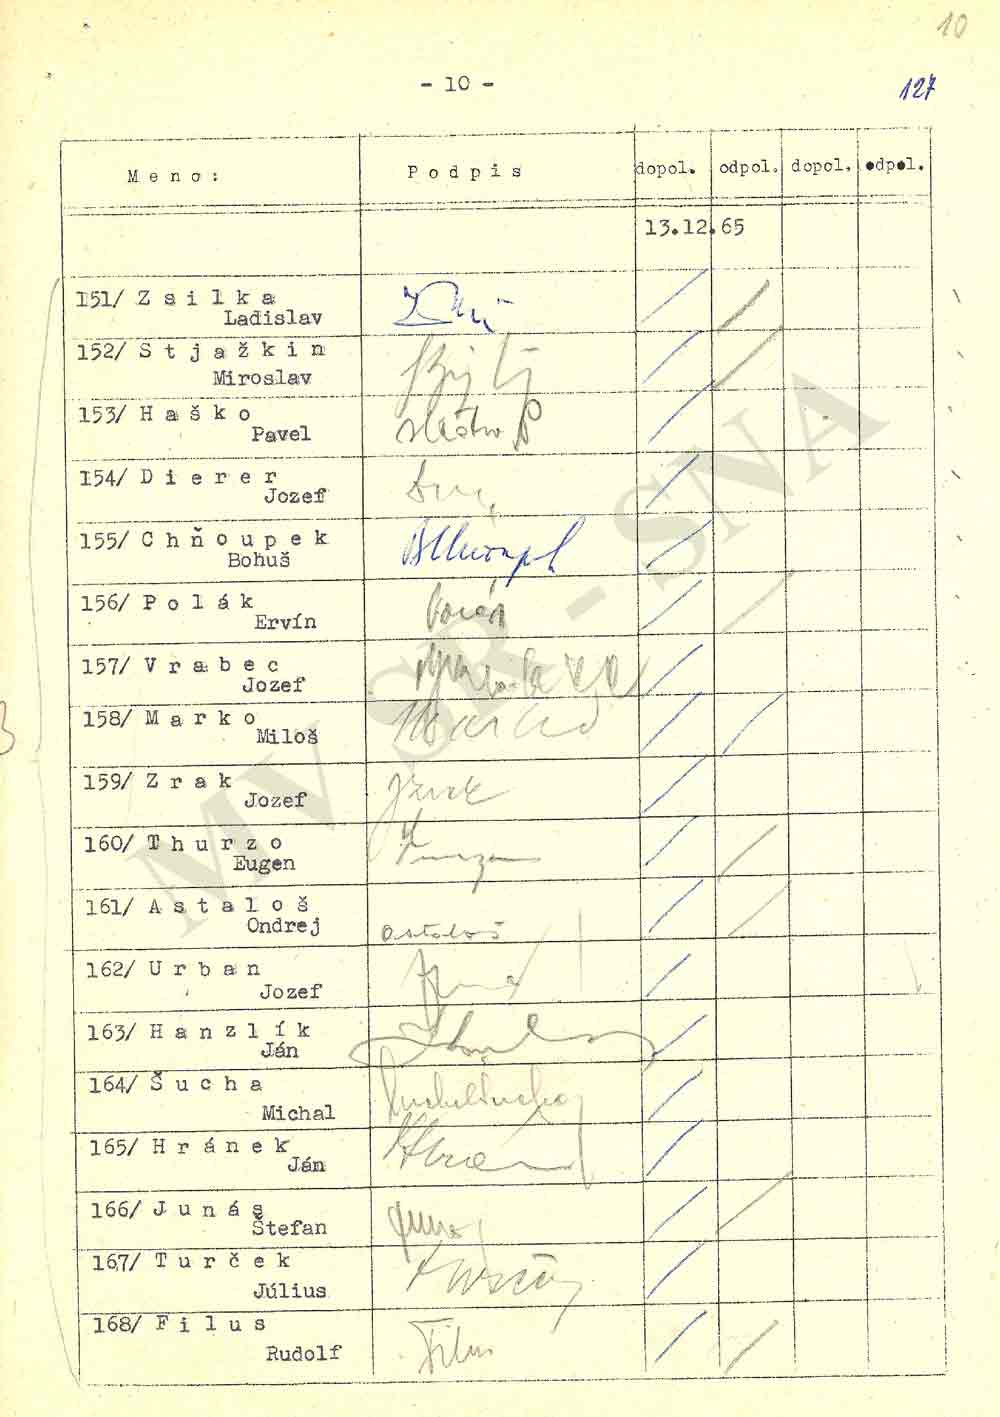 10
- 10 -
127
Meno: Podpis dopol. odpol. dopol. odpol.
13.12.65
151/ Zsilka
Ladislav
152/ Stjažkin
Miroslav
153/ Haško
Pavel
154/ Dierer
Jozef
155/ Chňoupek
Bohuš
156/ Polák
Ervín
157/ Vrabec
Jozef
158/ Marko
Miloš
159/ Zrak
Jozef
160/ Thurzo
Eugen
161/ Astaloš
Ondrej
astaloš
162/ Urban
Jozef
163/ Hanzlík
Ján
164/ Šucha
Michal
165/ Hránek
Ján
166/ Junás
Štefan
167/ Turček
Július
168/ Filus
Rudolf
Filus
MV SR - SNA